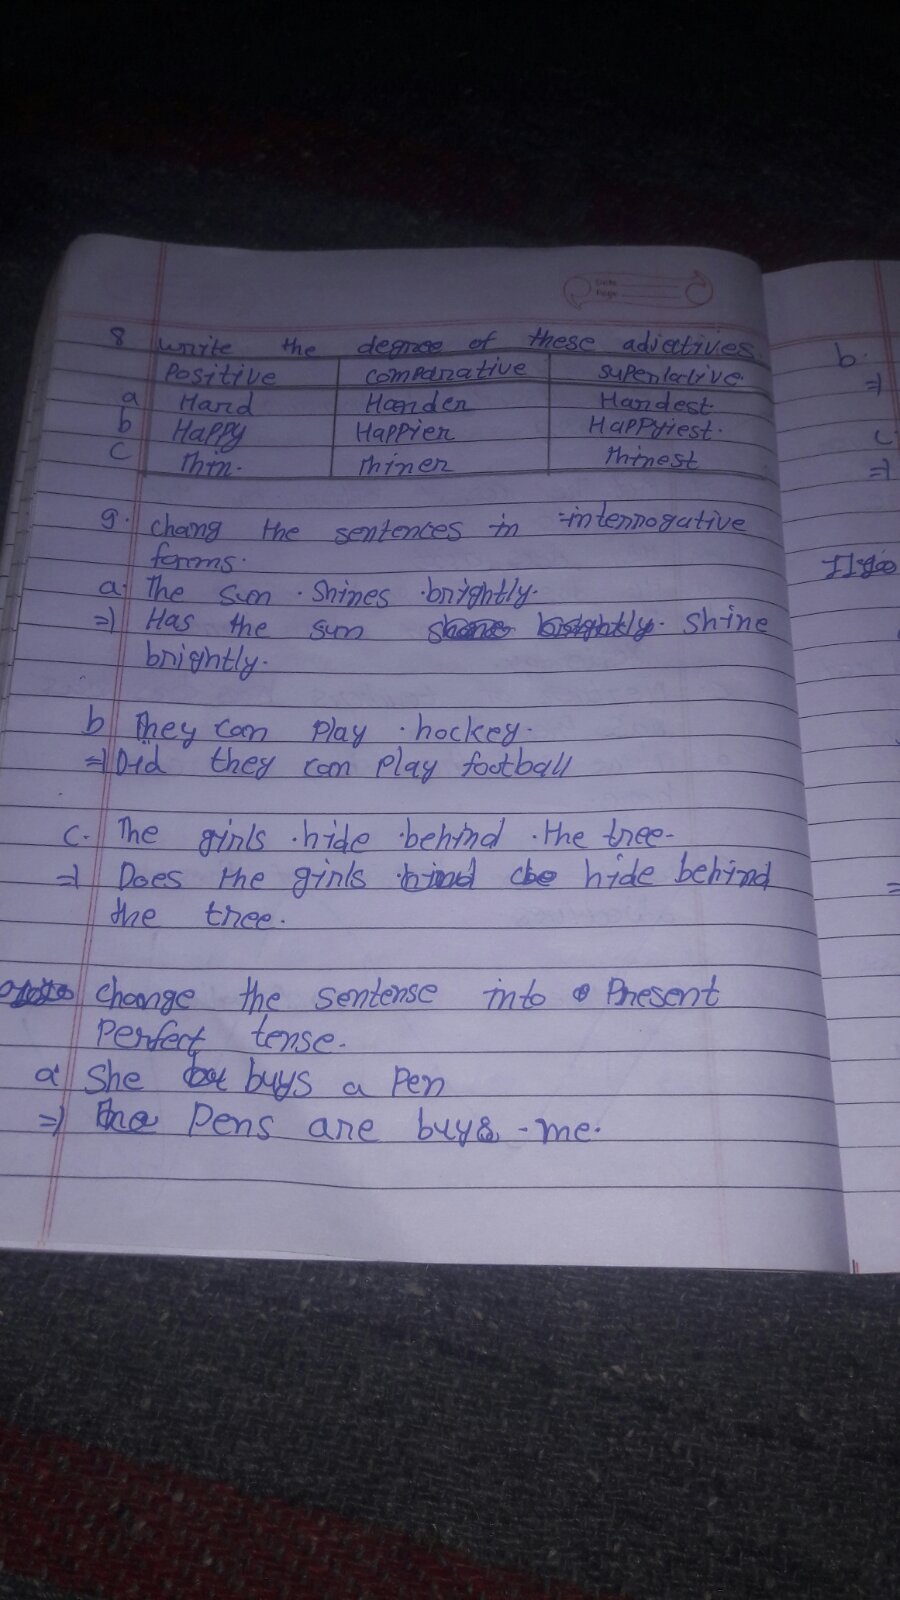 Date
Page
8 write the degree of these adjectives.
Positive comparative superlative.
a Hard Harder Hardest.
b Happy Happier Happyiest.
C Thin. Thiner Thinest
9. Chang the sentences in interrogative
forms.
a. The sun shines brightly.
⇒ Has the sun shine
brightly.
b They can play hockey.
⇒ Did they can play football
C. The girls hide behind the tree.
⇒ Does the girls hide behind
the tree.
Change the sentense into Present
Perfect tense.
a She buys a Pen
⇒ Pens are buys me.
b.
⇒
c.
⇒